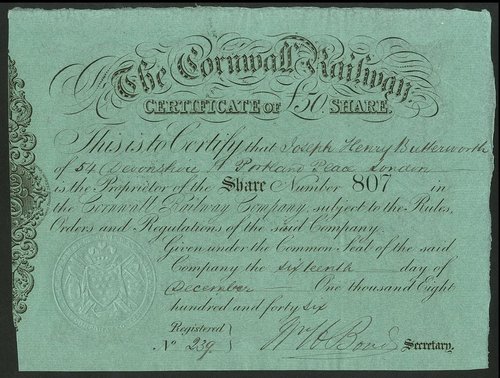 The Cornwall Railway.
CERTIFICATE OF £50 SHARE.
This is to Certify that Joseph Henry Butterworth
of 54 Devonshire St Portland Place London
is the Proprietor of the Share Number 807 in
the Cornwall Railway Company, subject to the Rules,
Orders and Regulations of the said Company.
Given under the Common Seal of the said
Company the Sixteenth day of
December One thousand Eight
hundred and forty six
Registered
No 239.
Secretary.